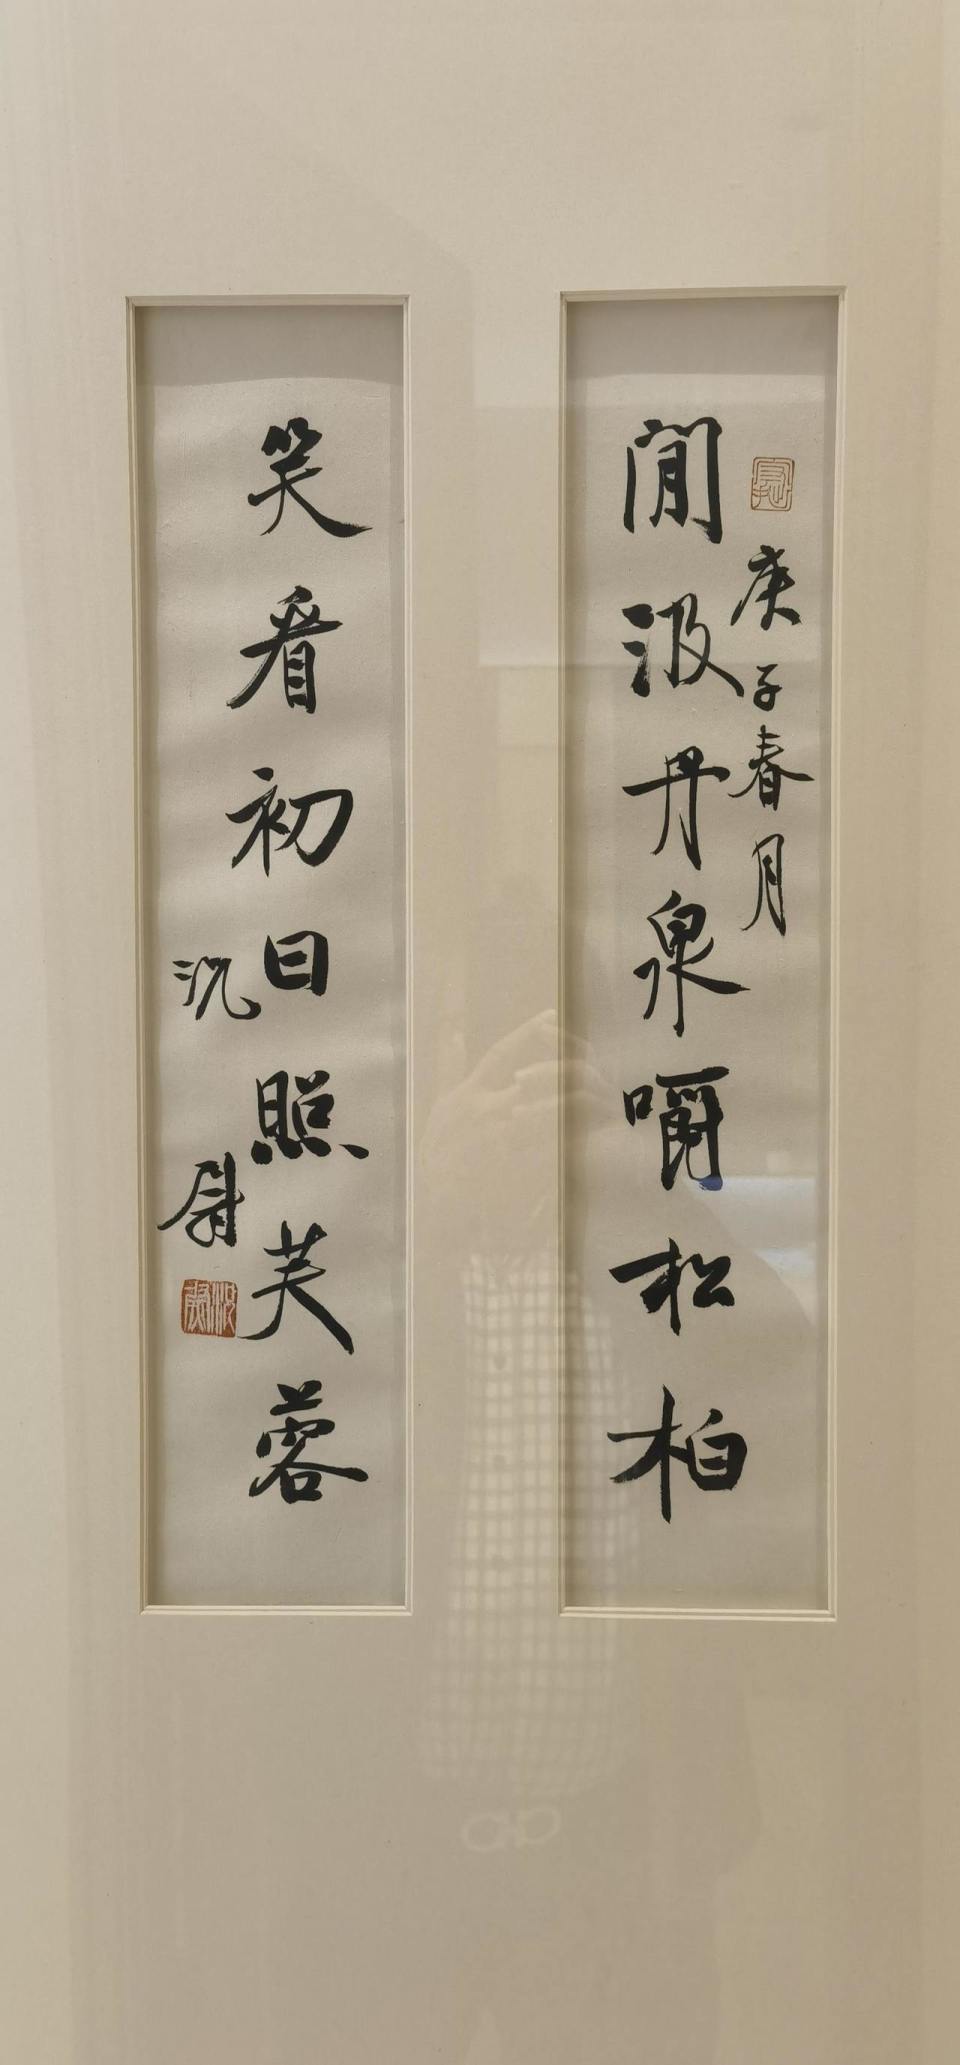 庚子春月
閒汲丹泉嚼松柏
笑看初日照芙蓉
沉